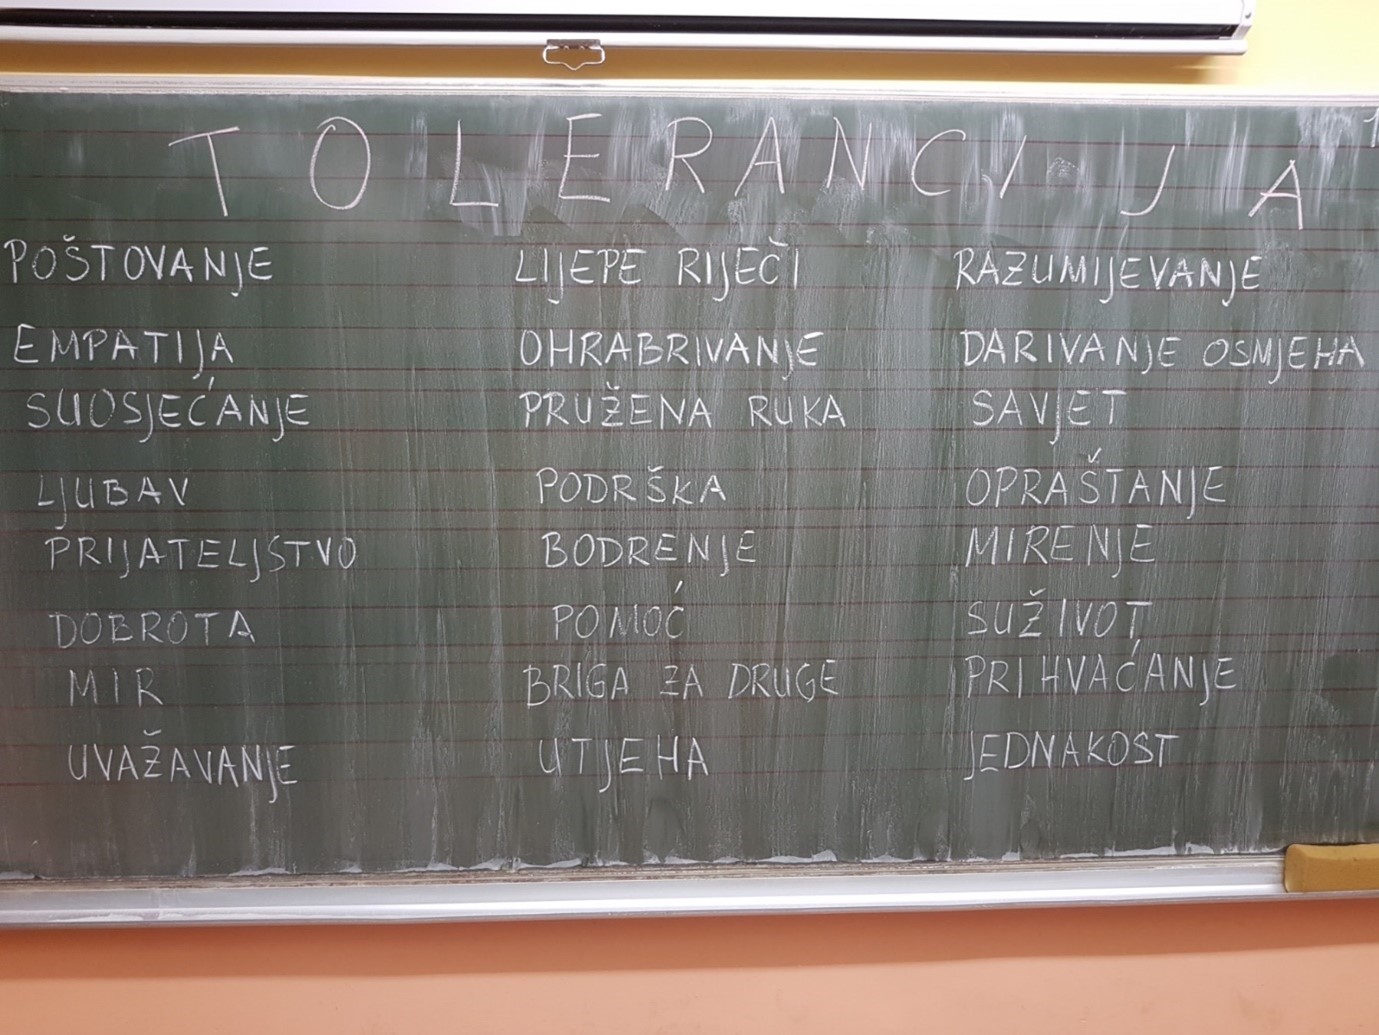 TOLERANCIJA
POŠTOVANJE
EMPATIJA
SUOSJEĆANJE
LJUBAV
PRIJATELJSTVO
DOBROTA
MIR
UVAŽAVANJE
LIJEPE RIJEČI
OHRABRIVANJE
PRUŽENA RUKA
PODRŠKA
BODRENJE
POMOĆ
BRIGA ZA DRUGE
UTJEHA
RAZUMIJEVANJE
DARIVANJE OSMJEHA
SAVJET
OPRAŠTANJE
MIRENJE
SUŽIVOT
PRIHVAĆANJE
JEDNAKOST